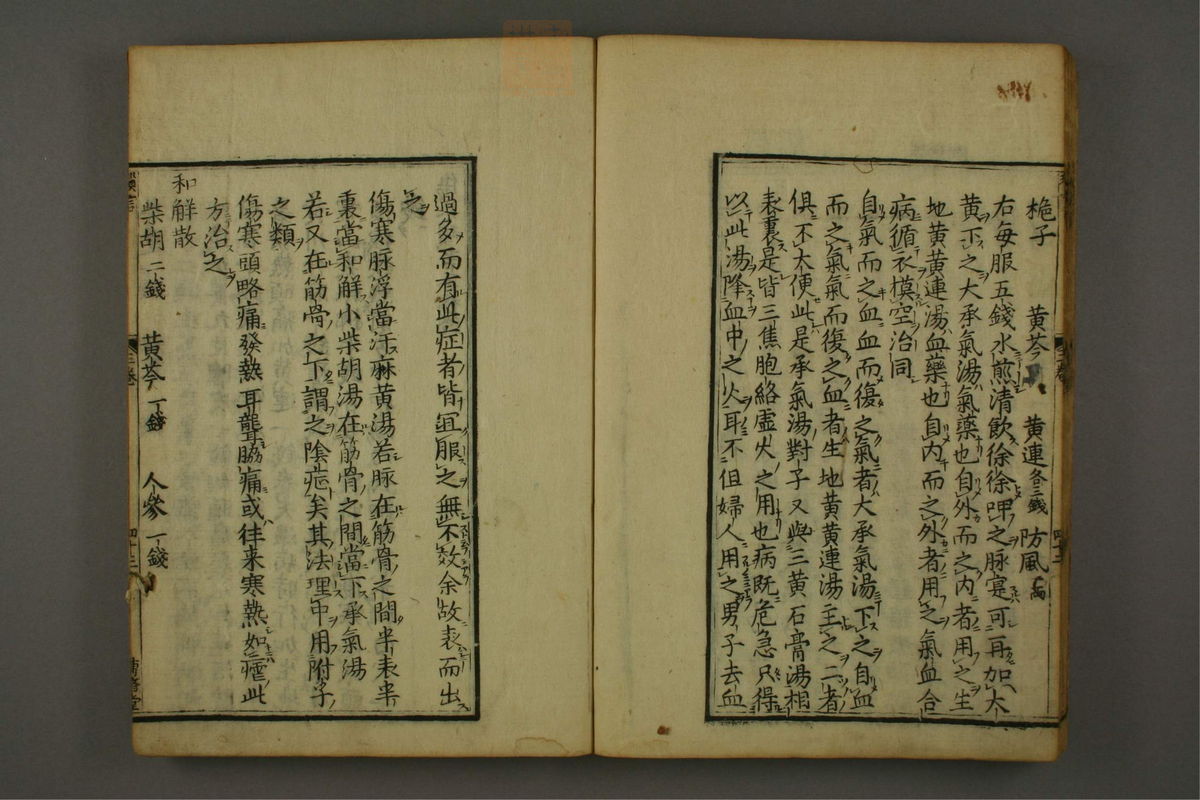 梔子 黄芩 黄連各三錢 防風
右每服五錢水煎清飲徐徐呷之脉寔可再加大
黄下之大承氣湯氣藥也自外而之内者用之生
地黄黄連湯血藥也自内而之外者用之氣血合
病循衣摸空治同
自氣而之血血而復之氣者大承氣湯下之自血
而之氣氣而復之血者生地黄黄連湯主之二者
俱不大便此是承氣湯對子又與三黄石膏湯相
表裏是皆三焦胞絡虚火之用也病既危急只得
以此湯降血中之火耳不但婦人用之男子去血
過多而有此症者皆宜服之無不效余故表而出
之
傷寒脉浮當汗麻黄湯若脉在筋骨之間半表半
裏當和解小柴胡湯在筋骨之間當下承氣湯
若又在筋骨之下謂之陰症矣其法理中用附子
之類
傷寒頭略痛發熱耳聾脇痛或往来寒熱如瘧此
方治之
和解散
柴胡二錢 黄芩一錢 人參一錢
三卷 四十三